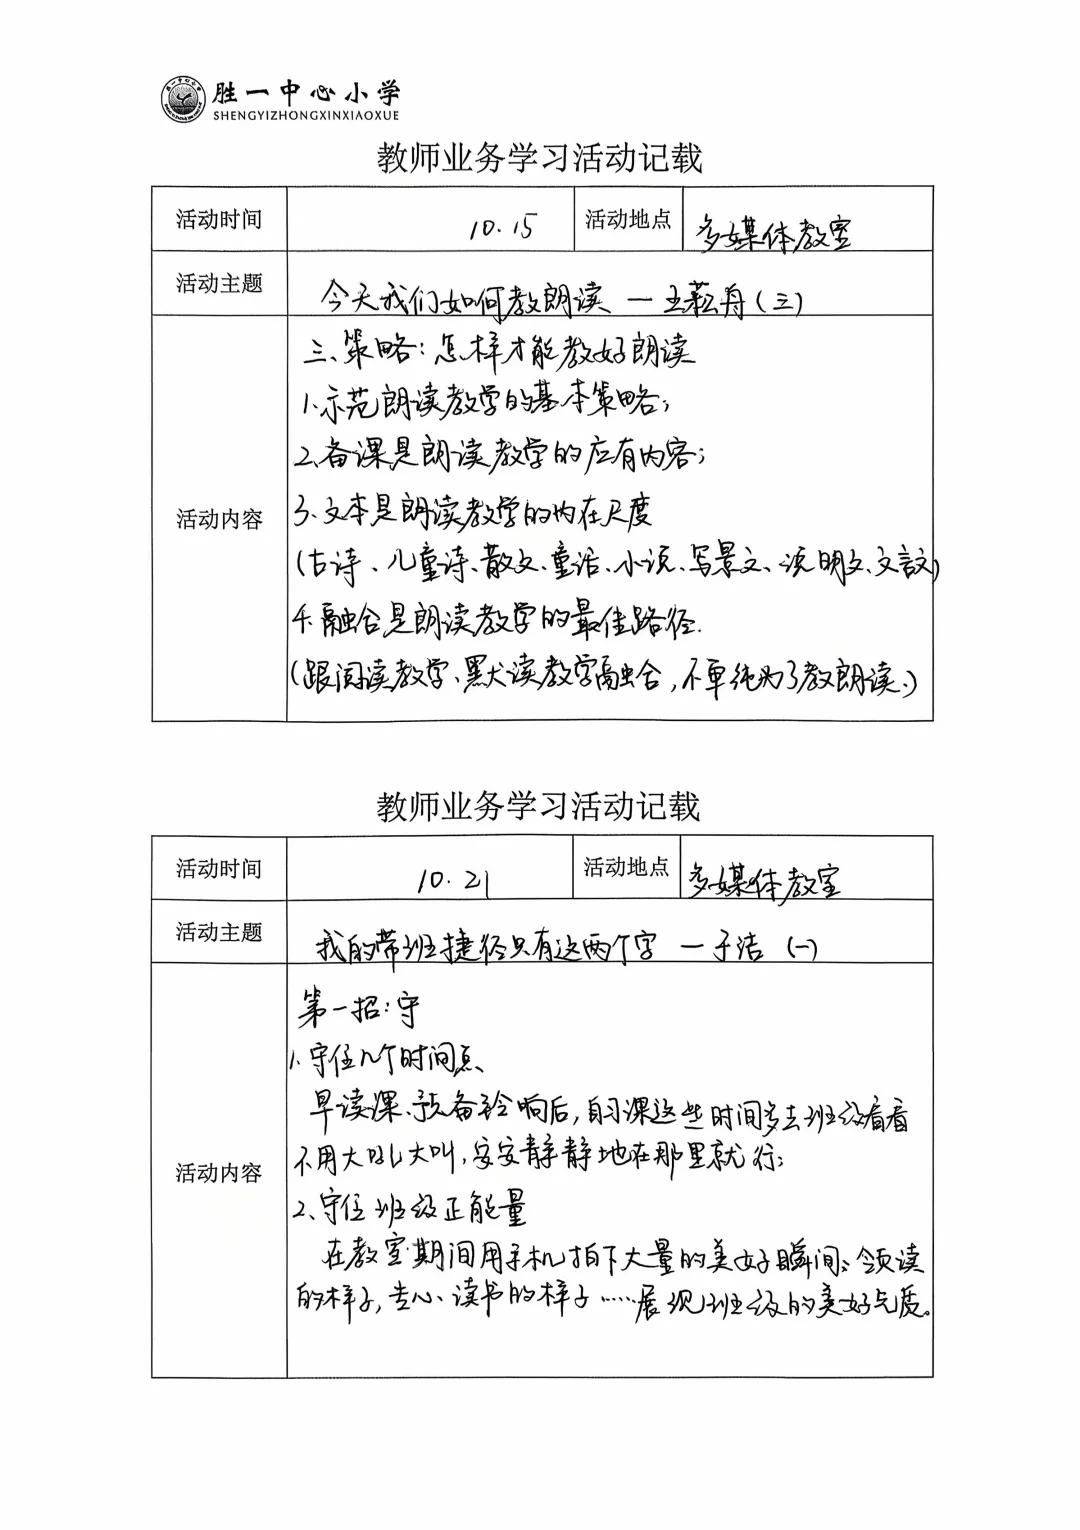 胜一中心小学
SHENGYIZHONGXINXIAOXUE
教师业务学习活动记载
活动时间 10.15 活动地点 多媒体教室
活动主题 今天我们如何教朗读 一王崧舟(三)
活动内容
三、策略:怎样才能教好朗读
1.示范朗读教学的基本策略;
2.备课是朗读教学的应有内容;
3、文本是朗读教学的内在尺度
(古诗、儿童诗、散文、童话、小说、写景文、说明文、文言文)
4.融合是朗读教学的最佳路径.
(跟阅读教学、默读教学融合,不单纯为了教朗读.)
教师业务学习活动记载
活动时间 10.21 活动地点 多媒体教室
活动主题 我的带班捷径只有这两个字 一于洁 (一)
活动内容
第一招:守
1.守住几个时间点
早读课、预备铃响后,自习课这些时间多去班级看看
不用大吼大叫,安安静静地在那里就行;
2、守住班级正能量
在教室期间用手机拍下大量的美好瞬间:领读
的样子,专心读书的样子……展现班级的美好气质。